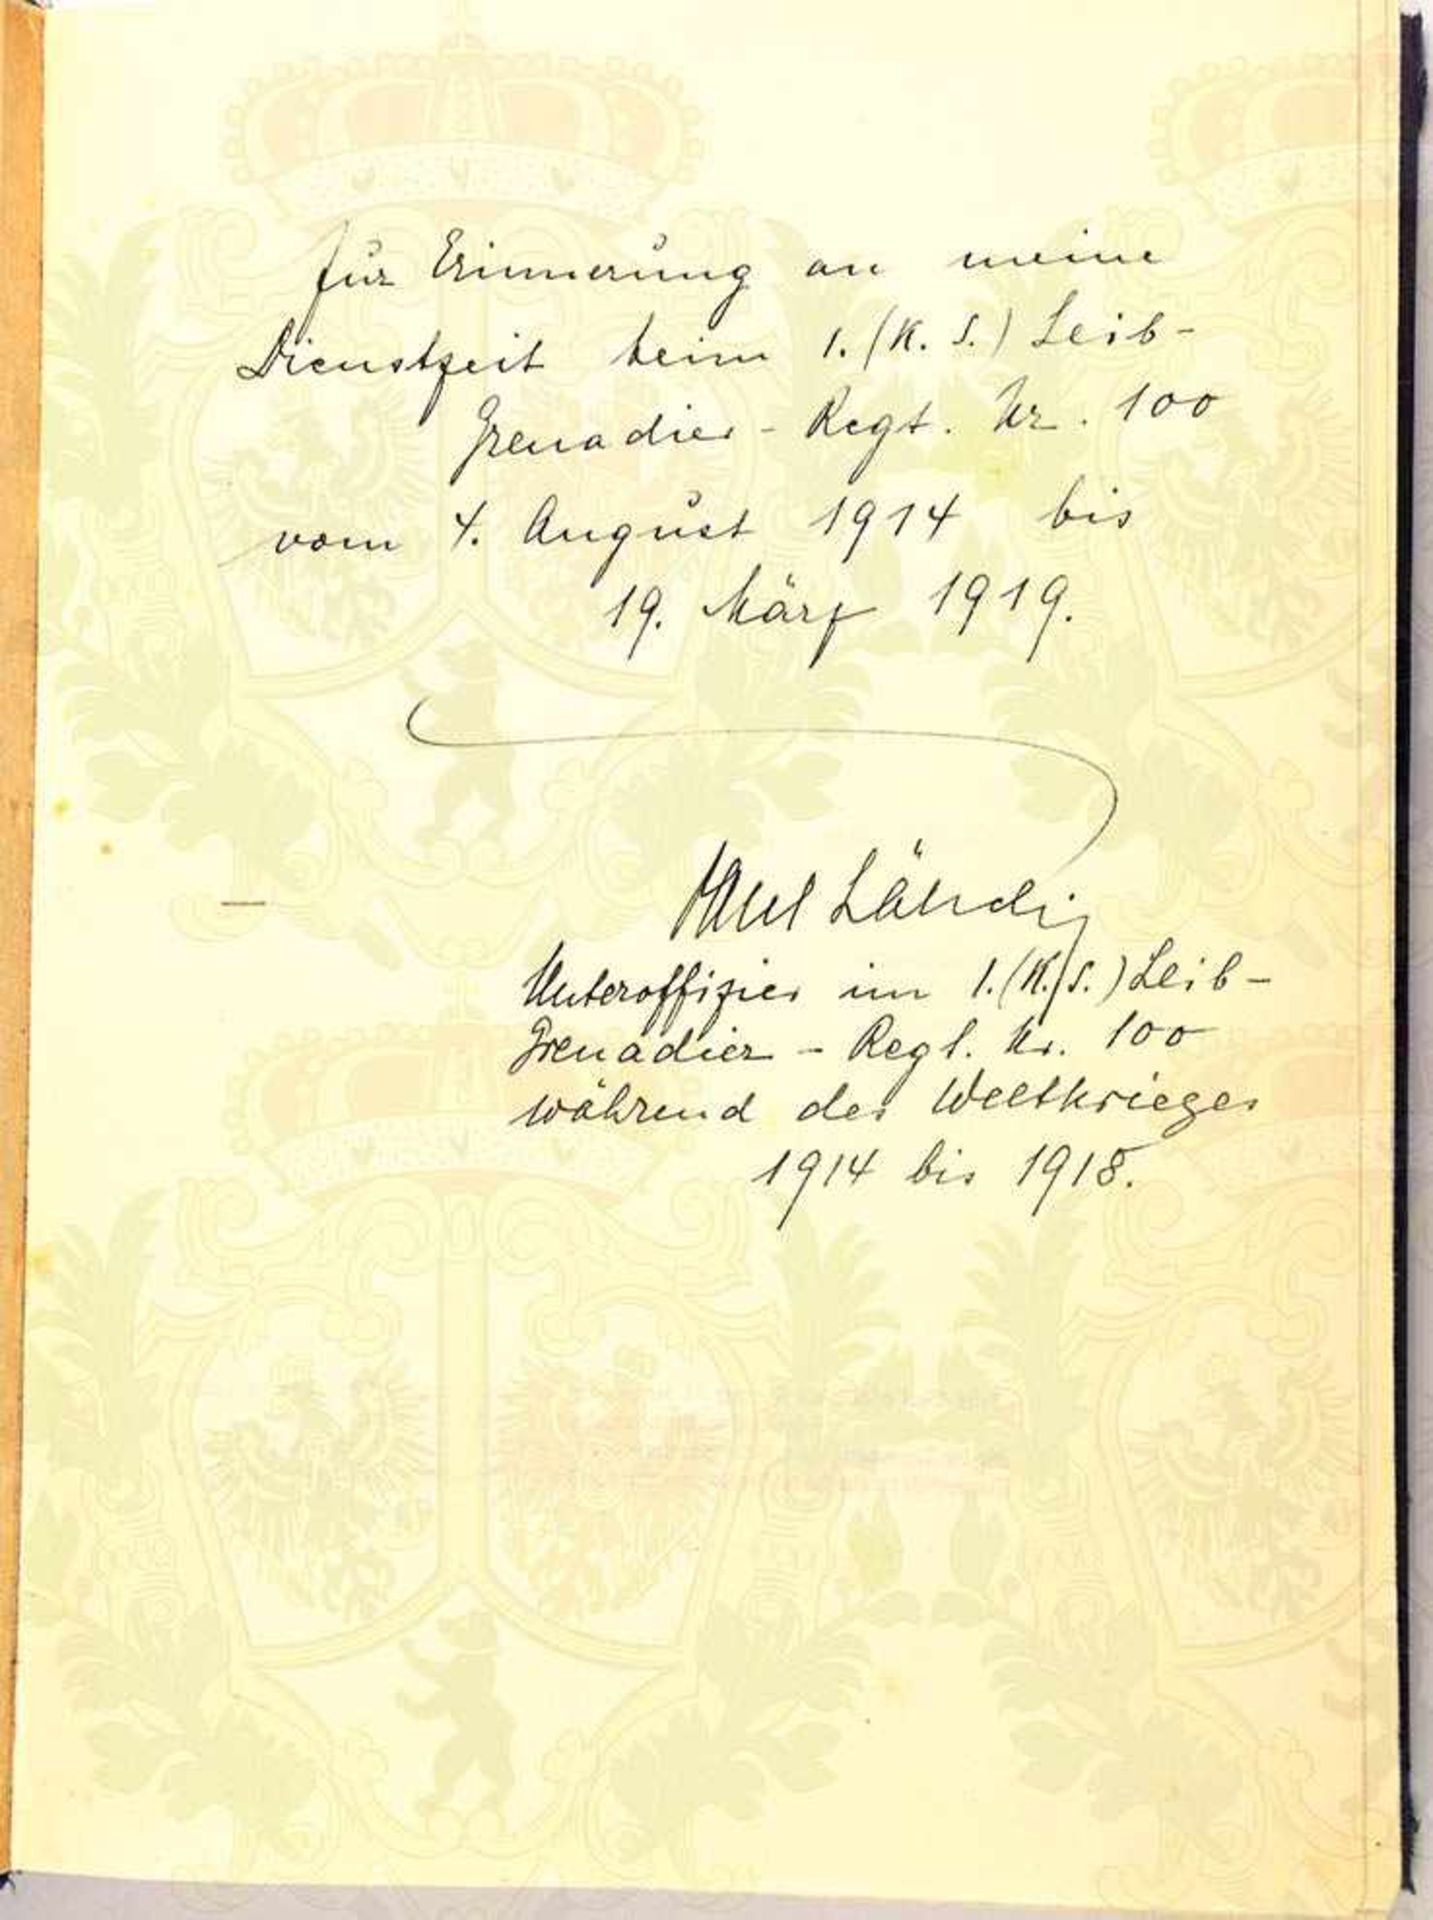 Zur Erinnerung an meine
Dienstzeit beim 1. (K. S.) Leib-
Grenadier - Regt. Nr. 100
vom 4. August 1914 bis
19. März 1919.
Unteroffizier im 1. (K. S.) Leib-
Grenadier - Regt. Nr. 100
während des Weltkrieges
1914 bis 1918.